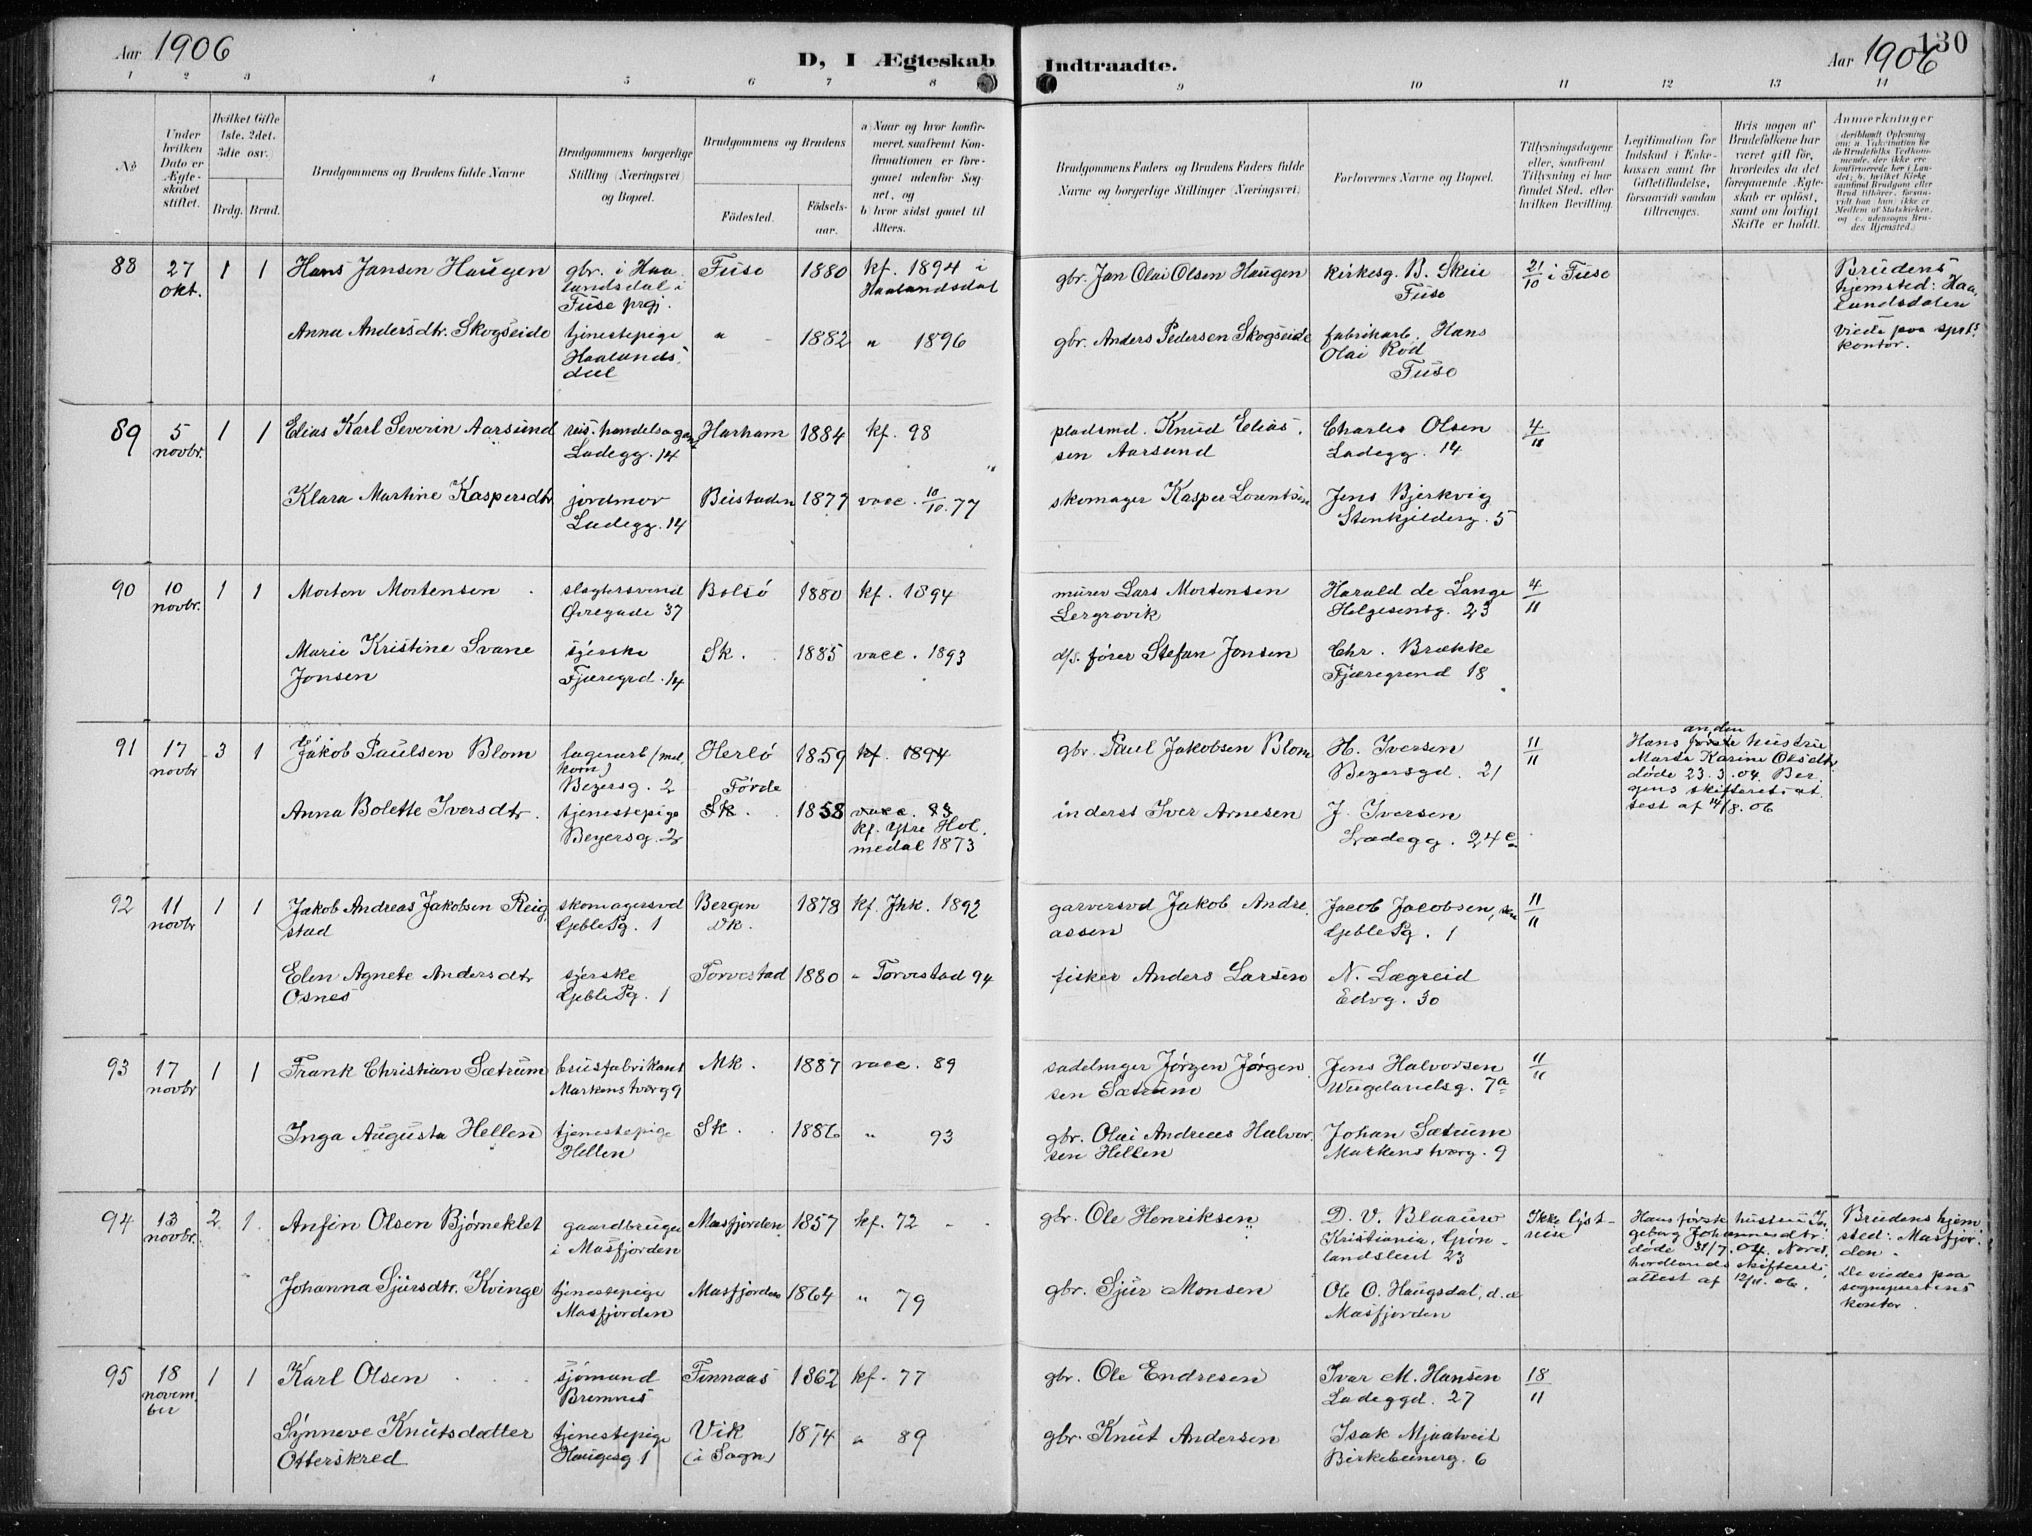 Aar 1906
D, I Ægteskab
Indtraadte.
Aar 1906
130
1 2 3 4 5 6 7 8
9 10 11 12 13 14
No
Under hvilken Dato er Ægteskabet stiftet.
Hvilket Gifte 1ste. 2det. 3die osv.)
Brdg. Brud.
Brudgommens og Brudens fulde Navne
Brudgommens borgerlige Stilling (Næringsvei) og Bopæl.
Brudgommens og Brudens
Födested.
Födsels-aar.
a) Naar og hvor konfirmeret, saafremt Konfirmationen er foregaaet udenfor Sognet, og
b) hvor sidst gaaet til Alters.
Brudgommens Faders og Brudens Faders fulde Navne og borgerlige Stillinger (Næringsvei)
Forlovernes Navne og Bopæl.
Tillysningsdagene eller, saafremt Tillysning ei har fundet Sted, efter hvilken Bevilling.
Legitimation for Indskud i Enkekassen samt for Giftetilladelse, forsaavidt saadan tiltrænges.
Hvis nogen af Brudefolkene har været gift för, hvorledes da det foregaaende Ægteskab er oplöst, samt om lovligt Skifte er holdt.
Anmerkninger
88
27 okt.
1 1
Hans Jansen Haugen
gbr. i Haa
landsdal i
Fuse prgj.
Fuse
1880
kf. 1894 i
Haalandsdal
gbr. Jan Olai Olsen Haugen
Kirkesg. B. Skeie
Fuse
21/10 i Fuse
Brudens
hjemsted: Haa
landsdalen
Viede paa sprts
kontor.
Anna Andersdtr. Skogseide
tjenestepige
Haalands
dal
"
1882
" 1896
gbr. Anders Pedersen Skogseide
fabrikarb. Hans
Olai Rød
Fuse
89
5 novbr.
1 1
Elias Karl Severin Aarsund
reis. handelsagent
Ladegg. 14
Harham
1884
kf. 98
pladsmd. Knud Elias
sen Aarsund
Charles Olsen
Ladegg. 14
4/11
Klara Martine Kaspersdtr
jordmor
Ladegg. 14
Beistaden
1877
vacc. 10/10. 77
skomager Kasper Lorentsen
Jens Bjerkvig
Stenkjelderg. 5
90
10 novbr.
1 1
Morten Mortensen
slagtersvend
Øvregade 37
Bolsø
1880
kf. 1894
murer Lars Mortensen
Lergrovik
Harald de Lange
Helgesensg. 23
4/11
Marie Kristine Svane
Jonsen
syerske
Fjæregrd. 14
Sk.
1885
vacc. 1893
d/s. fører Stefan Jonsen
Chr. Brække
Fjæregrend 18
91
17 novbr
3 1
Jakob Paulsen Blom
lagerarb (mel,
korn)
Beyersg. 2
Herlø
1859
kf. 1894
gbr. Paul Jakobsen Blom
H. Iversen
Beyersgd. 21
11/11
anden
Hans første hustru
Marta Karine Olsdtr
døde 23.3.04. Ber
gens skifterets at
test af 14/8.06
Anna Bolette Iversdtr.
tjenestepige
Beyersg. 2
Førde
Sk.
1858
vacc. 83
kf. Ytre Hol
medal 1873
inderst Iver Arnesen
J. Iversen
Ladegg. 24c
92
11 novbr
1 1
Jakob Andreas Jakobsen Reig
stad
skomagersvd
Gjeble Pg. 1
Bergen
Dk.
1878
kf. Jhk. 1892
garversvd Jakob Andre
assen
Jacob Jacobsen, sen
Gjeble Pg. 1
11/11
Elen Agnete Andersdtr
Osnes
syerske
Gjeble Pg. 1
Torvestad
1880
" Torvestad 94
fisker Anders Larsen
N. Lægreid
Edvg. 30
93
17 novbr
1 1
Frank Christian Sætrum
brusfabrikant
Markens tverg 9
Mk.
1887
vacc. 89
sadelmger Jørgen Jørgen
sen Sætrum
Jens Halvorsen
Wergelandsg. 7a
11/11
Inga Augusta Hellen
tjenestepige
Hellen
Sk.
1886
" 93
gbr. Olai Andreas Halvor
sen Hellen
Johan Sætrum
Markens tverg. 9
94
13 novbr.
2 1
Anfin Olsen Bjørneklet
gaardbruger
i Masfjorden
Masfjorden
1857
kf. 72
gbr. Ole Henriksen
D. V. Blaauw
Kristiania, Grøn
landsleiret 23
Ikke lyst-
Hans første hustru In
geborg Johannesdtr.
døde 31/7.04. Nord
hordlands skifterets
attest af 12/11.06.
Brudens hjem
sted: Masfjor
den.
De viedes paa
sogneprestens
kontor.
Johanna Sjursdtr. Kvinge
tjenestepige
Masfjorden
Masfjorden
1864
" 79
gbr. Sjur Monsen
Ole O. Haugsdal, d. æ
Masfjorden
95
18 novem
ber
1 1
Karl Olsen
sjømand
Bremnes
Finnaas
1862
kf. 77
gbr. Ole Endresen
Ivar M. Hansen
Ladeggd. 27
18/11
Synneve Knutsdatter
Otterskred
tjenestepige
Haugesg 1
Vik
(i Sogn)
1874
" 89
gbr. Knut Andersen
Isak Mjaatveit
Birkebeinerg. 6